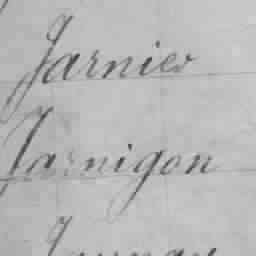 Jarnier
Jarnigon